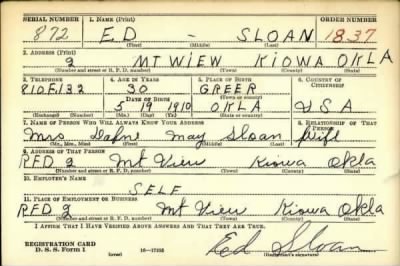 SERIAL NUMBER 1. NAME (Print) ORDER NUMBER
872 ED - SLOAN 1837
(First) (Middle) (Last)
2. ADDRESS (Print)
2 MT WIEW KIOWA OKLA
(Number and street or R. F. D. number) (Town) (County) (State)
3. TELEPHONE 4. AGE IN YEARS 5. PLACE OF BIRTH 6. COUNTRY OF CITIZENSHIP
810F132 30 GREER
DATE OF BIRTH (Town or county)
5 19 1910 OKLA USA
(Exchange) (Number) (Mo.) (Day) (Yr.) (State or country)
7. NAME OF PERSON WHO WILL ALWAYS KNOW YOUR ADDRESS 8. RELATIONSHIP OF THAT PERSON
Mrs May Sloan Wife
(Mr., Mrs., Miss) (First) (Middle) (Last)
9. ADDRESS OF THAT PERSON
RFD 2 Mt View Kiowa Okla
(Number and street or R. F. D. number) (Town) (County) (State)
10. EMPLOYER'S NAME
SELF
11. PLACE OF EMPLOYMENT OR BUSINESS
RFD 2 Mt View Kiowa Okla
(Number and street or R. F. D. number) (Town) (County) (State)
I AFFIRM THAT I HAVE VERIFIED ABOVE ANSWERS AND THAT THEY ARE TRUE.
REGISTRATION CARD
D. S. S. Form 1 (over) 16-17105 Ed Sloan
(Registrant's signature)